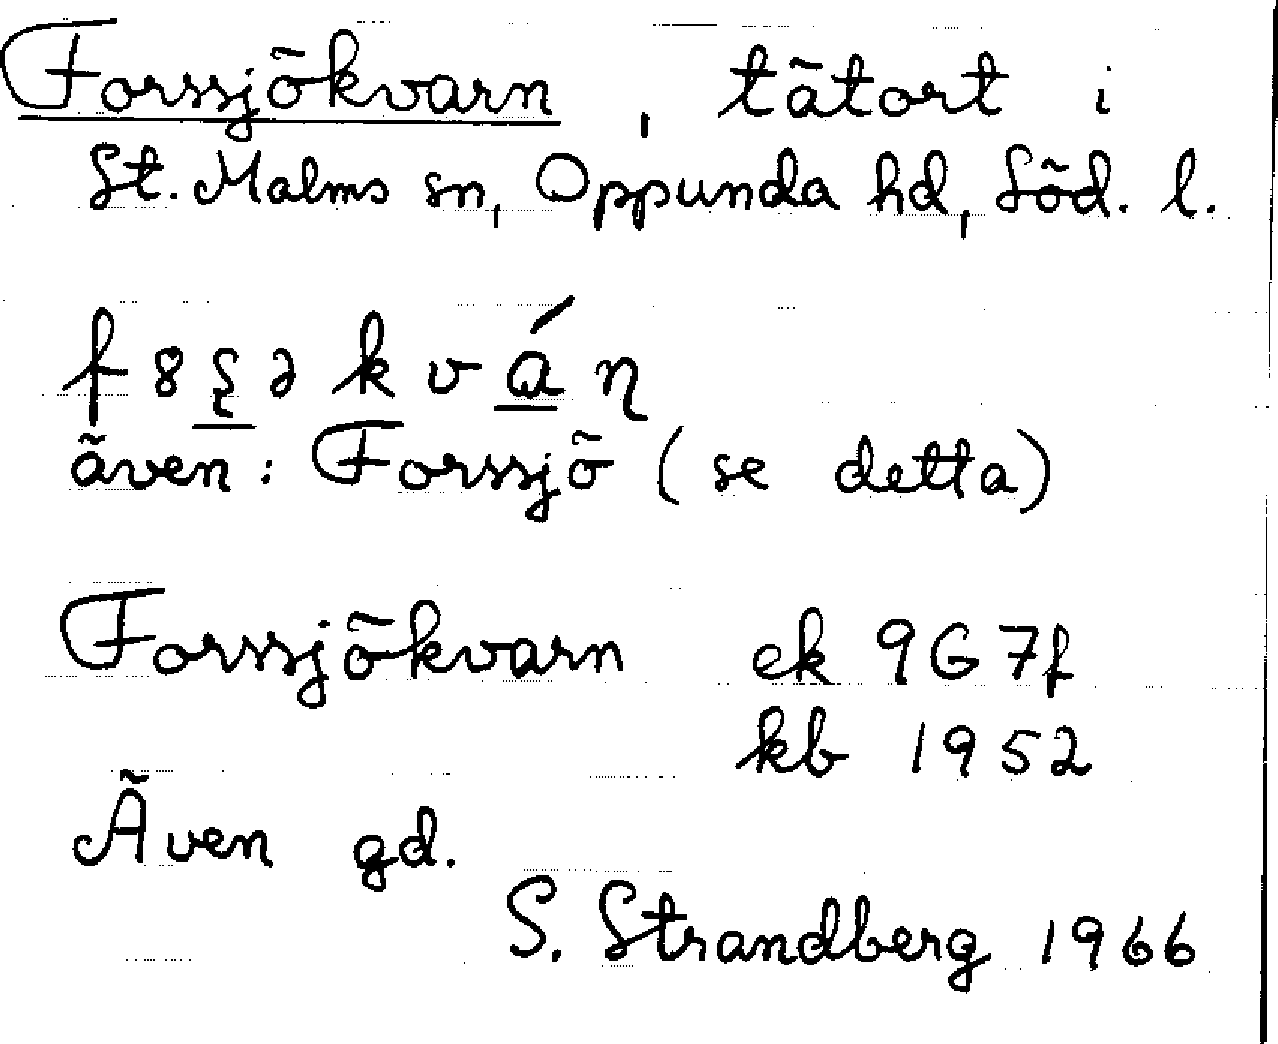 Forssjökvarn, tätort i
St. Malms sn, Oppunda hd, Söd. l.
f8ʂəkváɳ
även: Forssjö (se detta)
Forssjökvarn ek 9G7f
kb 1952
Även gd.
S. Strandberg 1966